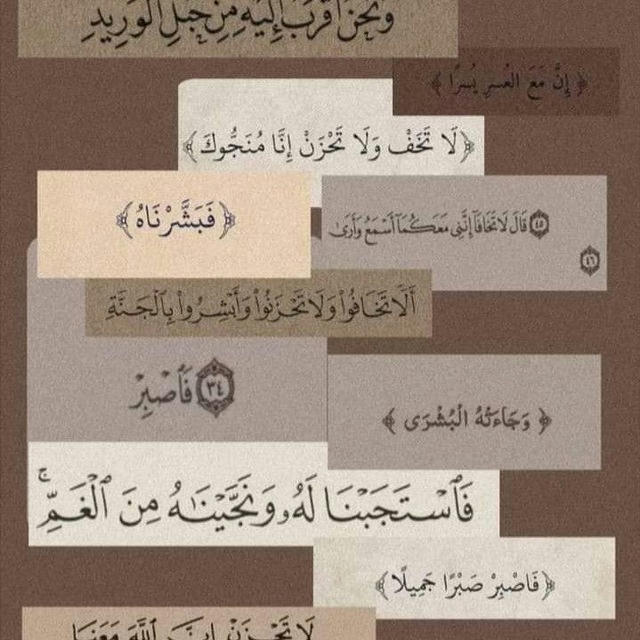 وَنَحْنُ أَقْرَبُ إِلَيْهِ مِنْ حَبْلِ الْوَرِيدِ
﴿ إِنَّ مَعَ الْعُسْرِ يُسْرًا ﴾
﴿لَا تَخَفْ وَلَا تَحْزَنْ إِنَّا مُنَجُّوكَ﴾
﴿فَبَشَّرْنَاهُ﴾
٤٥ قَالَ لَا تَخَافَا إِنَّنِي مَعَكُمَا أَسْمَعُ وَأَرَىٰ
٤٦
أَلَّا تَخَافُوا۟ وَلَا تَحْزَنُوا۟ وَأَبْشِرُوا۟ بِالْجَنَّةِ
٣٤ فَٱصْبِرْ
﴿ وَجَاءَتْهُ الْبُشْرَى ﴾
فَٱسْتَجَبْنَا لَهُۥ وَنَجَّيْنَٰهُ مِنَ ٱلْغَمِّ ۚ
﴿فَاصْبِرْ صَبْرًا جَمِيلًا﴾
لَا تَحْزَنْ إِنَّ ٱللَّهَ مَعَنَا